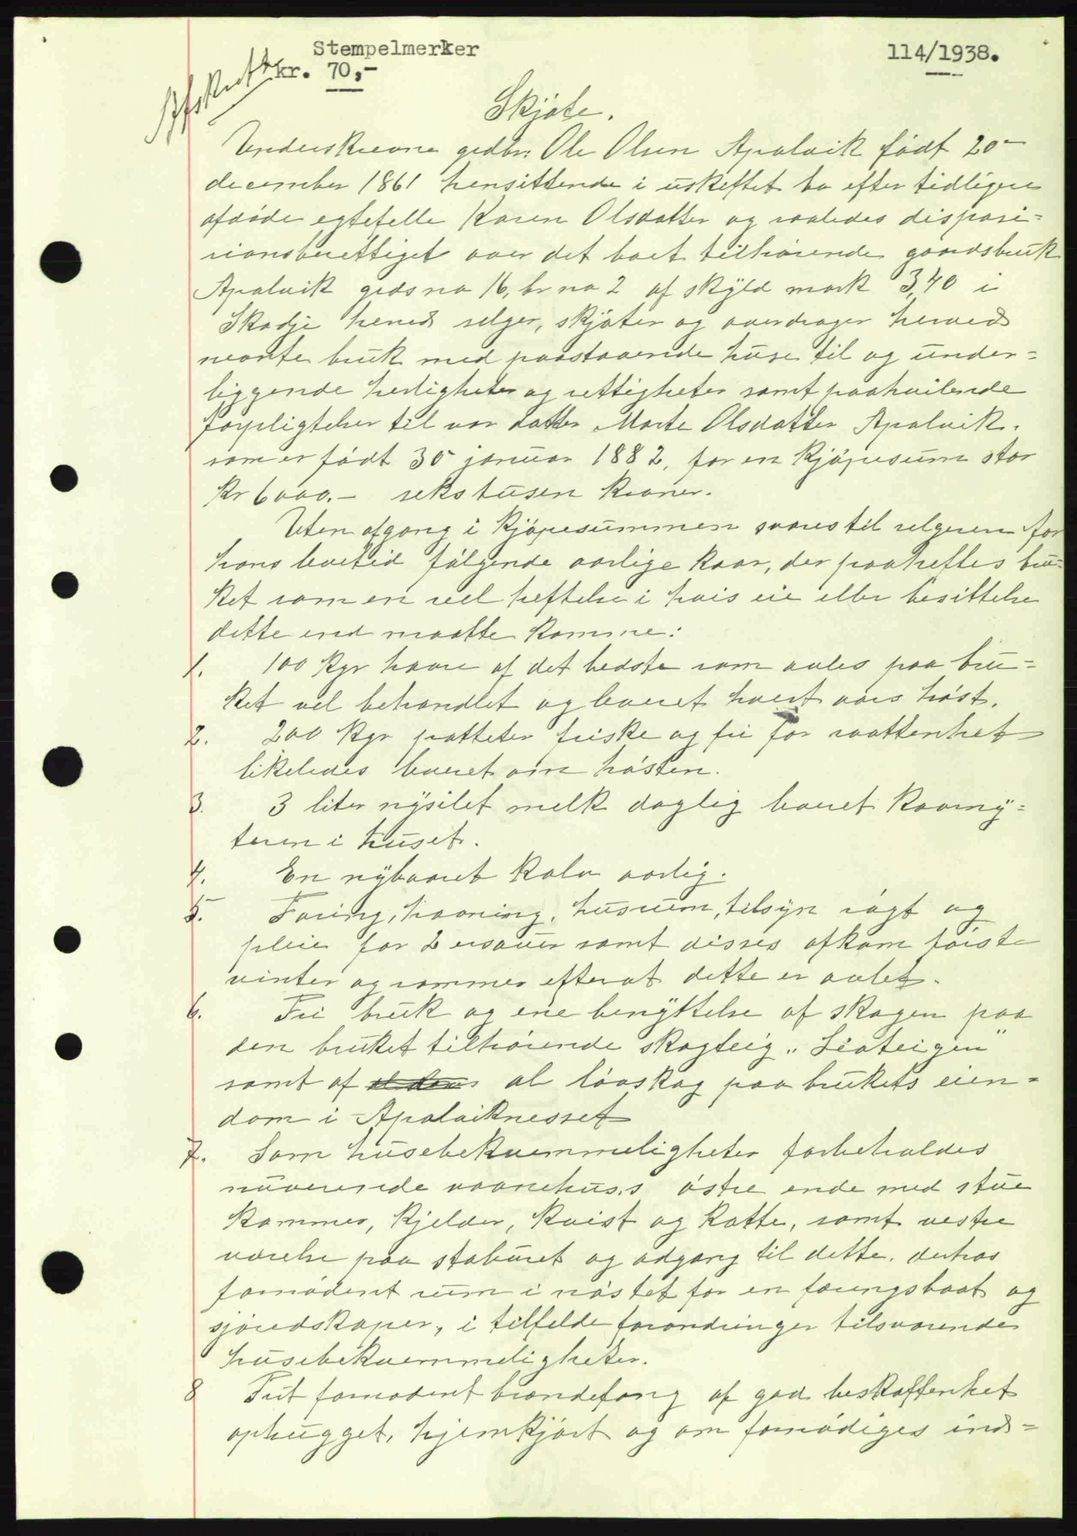 Stempelmerker
kr. 70,-
114/1938.
Afskrift
Skjöte.
Underskrevne gdbr. Ole Olsen Apalvik födt 20-
december 1861 hensittende i uskeftet bo efter tidligere
afdöde egtefelle Karen Olsdatter og saaledes disposi=
sionsberettiget over det boet tilhörende gaardsbruk
Apalvik grdsno 16, br no 2 af skyld mark 3,40 i
Skodje herred selger, skjöter og overdrager herved
nevnte bruk med paastaaende huse til og under=
liggende herligheter og rettigheter samt paahvilende
forpligtelser til vor datter Marte Olsdatter Apalvik.
som er födt 30 januar 1882, for en kjöpesum stor
kr 6000.- sekstusen kroner.
Uten afgang i kjöpesummen svares til selgeren for
hans levetid fölgende aarlige kaar, der paaheftes bru=
ket som en reel heftelse i hvis eie eller besittelse
dette end maatte komme:
1. 100 kgr havre af det bedste som avles paa bru=
ket vel behandlet og levert hvert aars höst.
2. 200 kgr potteter friske og fri for raattenhet
likeledes levert om hösten.
3. 3 liter nysilet melk daglig levert kaarny=
teren i huset.
4. En nybaaret kalv aarlig.
5. Foring, havning, husrum, tilsyn rögt og
pleie for 2 ersauer samt disses afkom förste
vinter og sommer efterat dette er avlet.
6. Fri bruk og ene benyttelse af skogen paa
den bruket tilhörende skogteig „Lioteigen"
samt af al lövskog paa brukets eien=
dom i Apalviknesset
7. Som husebekvemmeligheter forbeholdes
nuverende vaanehuss östre ende med stue
kammer, kjelder, kvist og kotte, samt vestre
verelse paa staburet og adgang til dette. derhos
fornödent rum i nöstet for en feringsbaat og
sjöredskaper, i tilfelde forandringer tilsvarende
husebekvemmeligheter.
8 Frit fornödent brendefang af god beskaffenhet
ophugget, hjemkjört og om fornödiges ind=